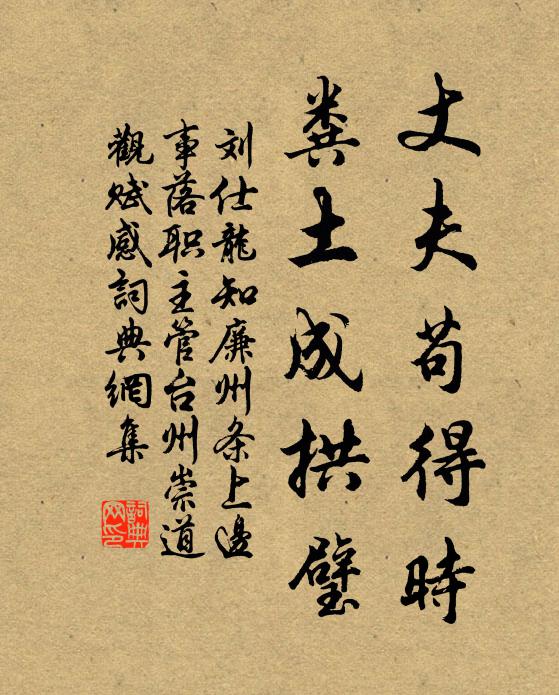 丈夫苟得時
糞土成拱璧
刘仕龍知廉州条上邊
事落职主管台州崇道
觀賦感詞典網集
詞典网印